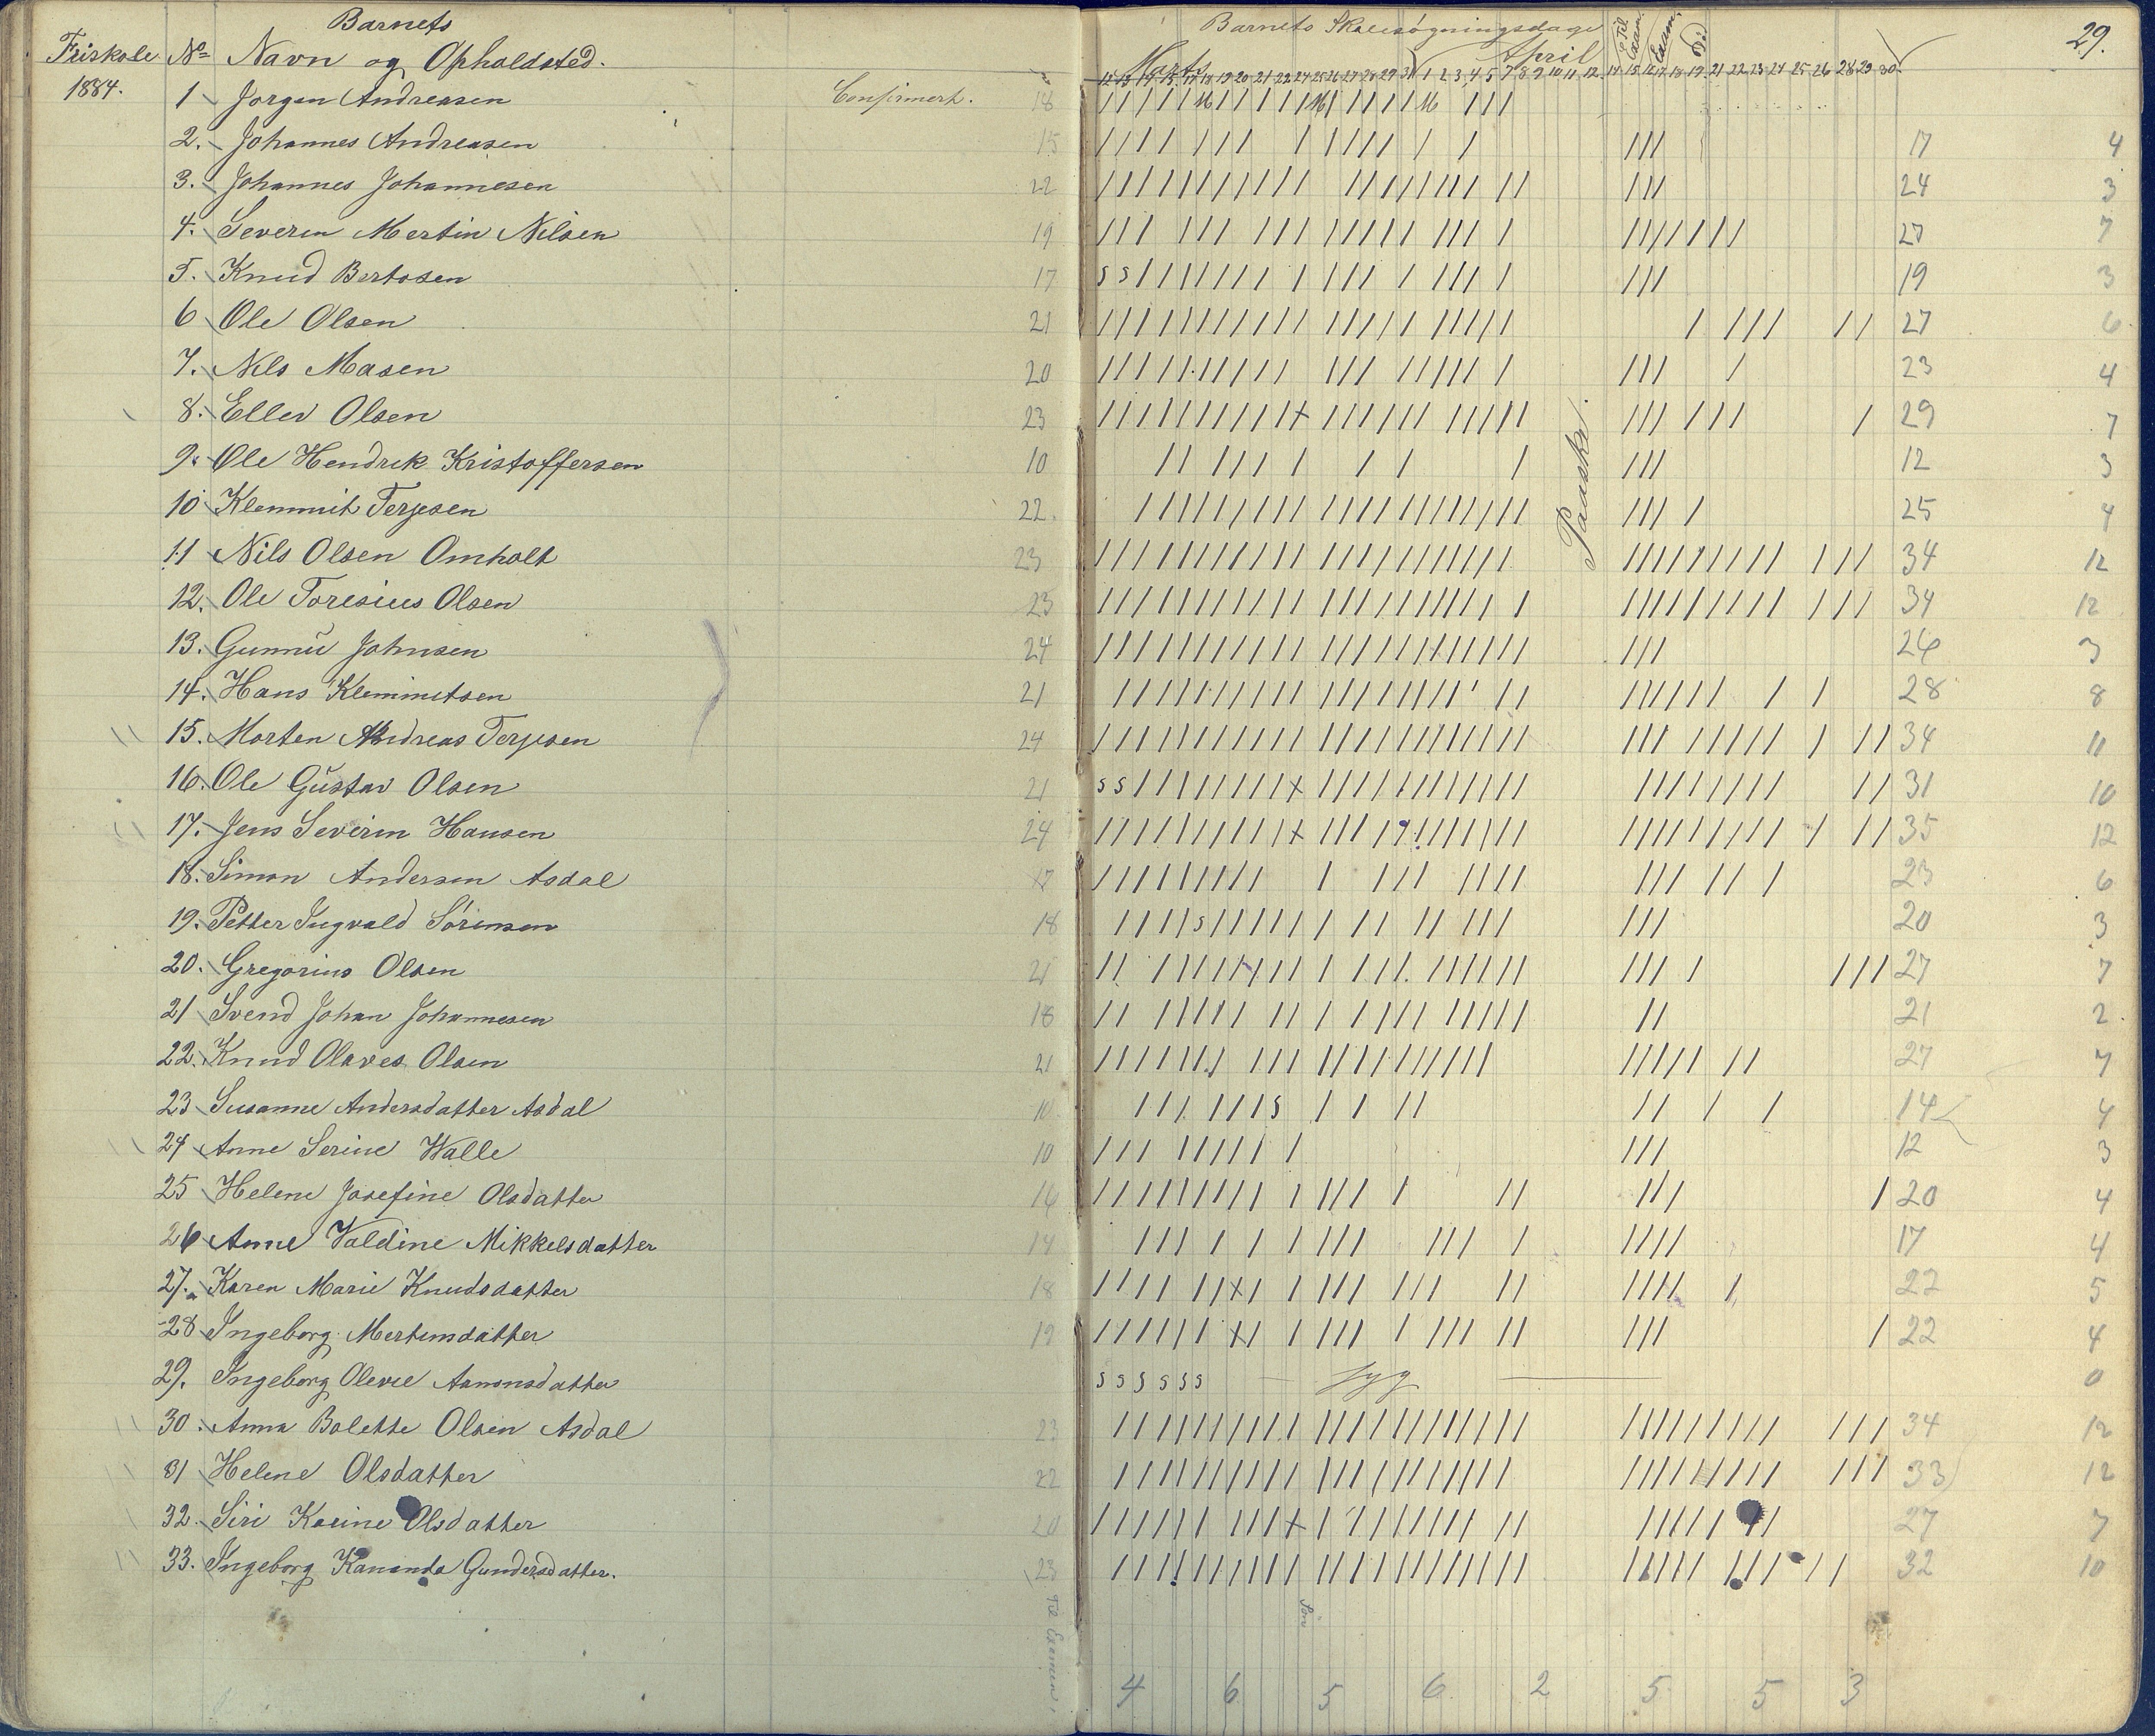 Barnets
Friskole No Navn og Opholdsted.
1884.
Barnets Skolesøgningsdage
29.
Marts April
Confirmert.
1 Jorgen Andreasen 18
2. Johannes Andreasen 15 17 4
3. Johannes Johannesen 22 24 3
4. Severin Mertin Nilsen 19 27 7
5. Knud Bertosen 17 s s 19 3
6 Ole Olsen 21 27 6
7. Nils Masen 20 23 4
8. Ellev Olsen 23 29 7
9. Ole Hendrik Kristoffersen 10 12 3
10 Klemmit Terjesen 22 25 4
11 Nils Olsen Omholt 23 34 12
12. Ole Toresius Olsen 23 34 12
13. Gunnu Johnsen 24 26 3
14. Hans Klemmetsen 21 28 8
15. Morten Andreas Terjesen 24 34 11
16. Ole Gustav Olsen 21 s s 31 10
17. Jens Severin Hansen 24 35 12
18. Simon Andersen Asdal 17 23 6
19. Petter Ingvald Sörensen 18 s 20 3
20. Gregorius Olsen 21 27 7
21 Svend Johan Johannesen 18 21 2
22. Knud Olaves Olsen 21 27 7
23 Susanne Andersdatter Asdal 10 s 14 4
24 Anne Serine Walle 10 12 3
25 Helene Josefine Olsdatter 16 20 4
26 Anne Valdine Mikkelsdatter 14 17 4
27. Karen Marie Knudsdatter 18 22 5
28 Ingeborg Mertinsdatter 19 22 4
29. Ingeborg Olevie Aanonsdatter s s s s s s syg 0
30. Anna Bolette Olsen Asdal 23 34 12
31 Helene Olsdatter 22 33 12
32. Siri Karine Olsdatter 20 27 7
33. Ingeborg Kananda Gundersdatter. 23 32 10
Paaske.
Til Examen
4 6 5 6 2 5 5 3